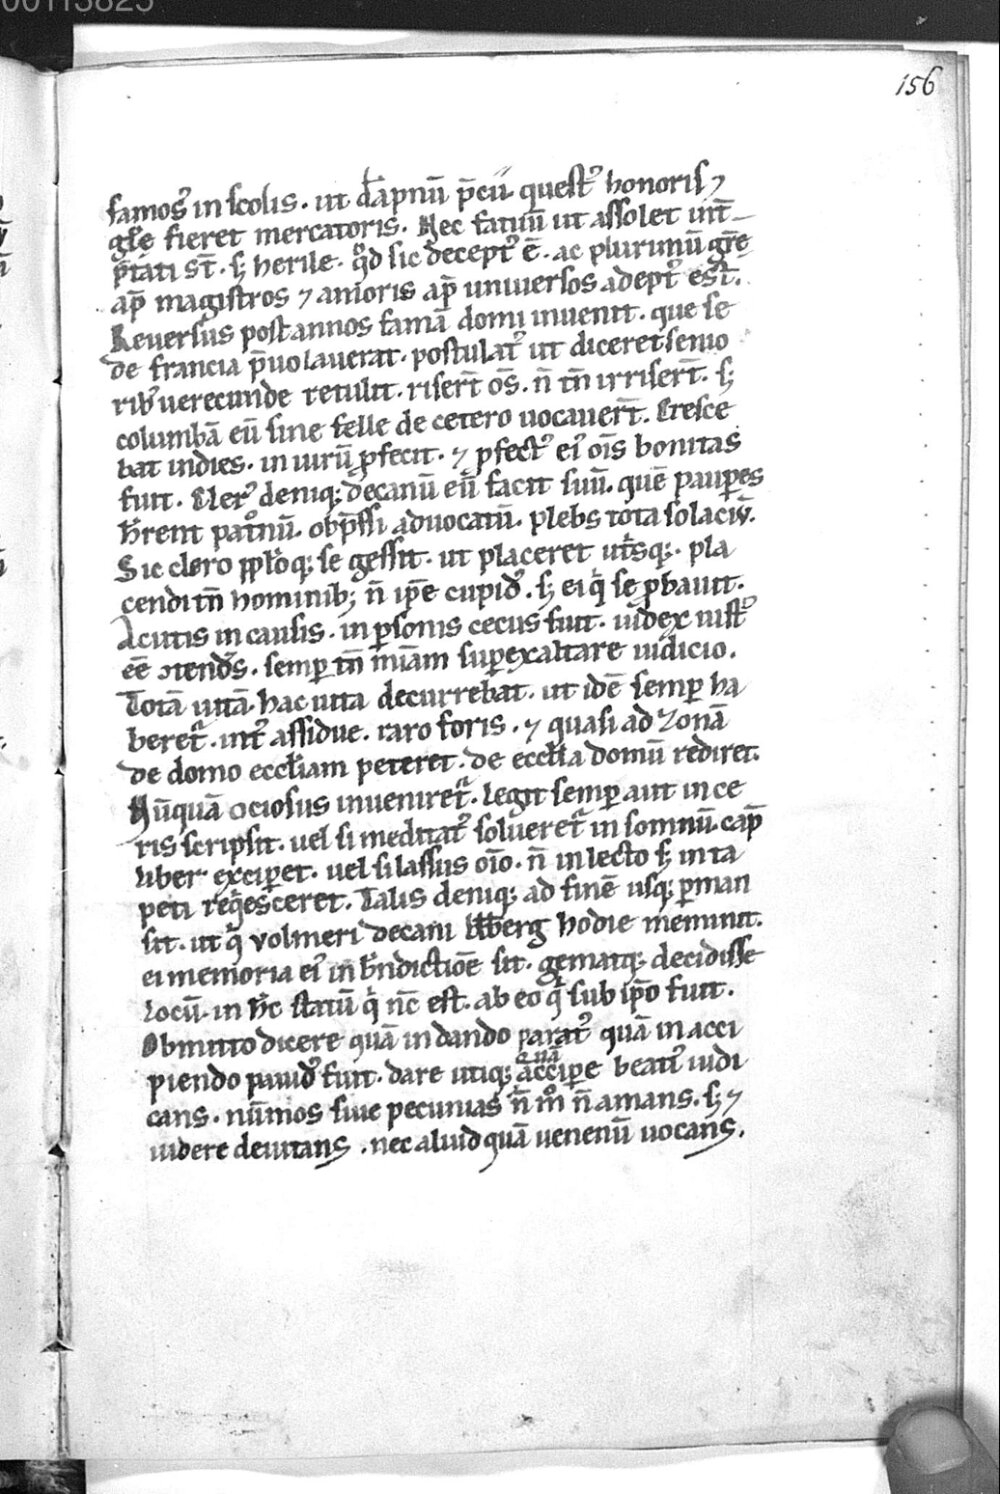 00113825
156
famosꝰ in scolis. ut dāpnū p̄cii. questꝰ honoris ⁊
gl̄e fieret mercatoris. Nec fatuū ut assolet
p̄tati st̄. sꝫ herile. qͦd sic deceptꝰ ē. ac plurimū gr̄e
ap̄ magistros ⁊ amoris ap̄ uniuersos adeptꝰ est.
Reuersus post annos famā domi inuenit. que se
de francia p̄uolauerat. postulatꝰ ut diceret senio
ribꝰ uerecunde retulit. risert̄ om̄s. n̄ tn̄ irrisert̄. sꝫ
columbā eū sine felle de cetero uocauert̄. Cresce
bat indies. in uirū ꝓfecit. ⁊ ꝑfectꝰ eiꝰ oīs bonitas
fuit. deniqꝫ decanū eū facit suū. quē pauꝑes
hr̄ent patͦnū. obp̄ssi aduocatū. plebs tota solaciū.
Sic clero pp̄loqꝫ se gessit. ut placeret utͥsqꝫ. pla
cendi tn̄ hominibꝫ n̄ ip̄e cupidꝰ. sꝫ ei qͥ se ꝓbauit.
Acutis in causis. in ꝑsonis cecus fuit. iudex iustꝰ
eē ꝯtendēs. semꝑ tn̄ mīam suꝑexaltare iudicio.
Totā uitā hac uita decurrebat. ut idē semꝑ ha
beretᷣ. intꝰ assidue. raro foris. ⁊ quasi ad zonā
de domo eccl̄iam peteret. de eccl̄ia domū rediret.
Nūquā ociosus inueniretᷣ. legit semꝑ aut in ce
ris scripsit. uel si meditatꝰ solueretᷣ in somnū. cap̄
liber exciꝑet. uel si lassus oīo. n̄ in lecto sꝫ in ta
peti reqͥesceret. Talis deniqꝫ ad finē usqꝫ ꝑman
sit. ut qͥ volmeri decani hodie meminit.
ei memoria eiꝰ in bn̄dictiōe sit. gematqꝫ decidisse
locū. in hc̄ statū qͥ nc̄ est. ab eo qͥ sub ip̄o fuit.
Obmitto dicere quā in dando paratꝰ quā in acci
piendo pauidꝰ fuit. dare utiqꝫ quā acciꝑe beatiꝰ iudi
cans. nūmos siue pecunias n̄ mͦ n̄ amans. sꝫ ⁊
uidere deuitans. nec aliud quā uenenū uocans.